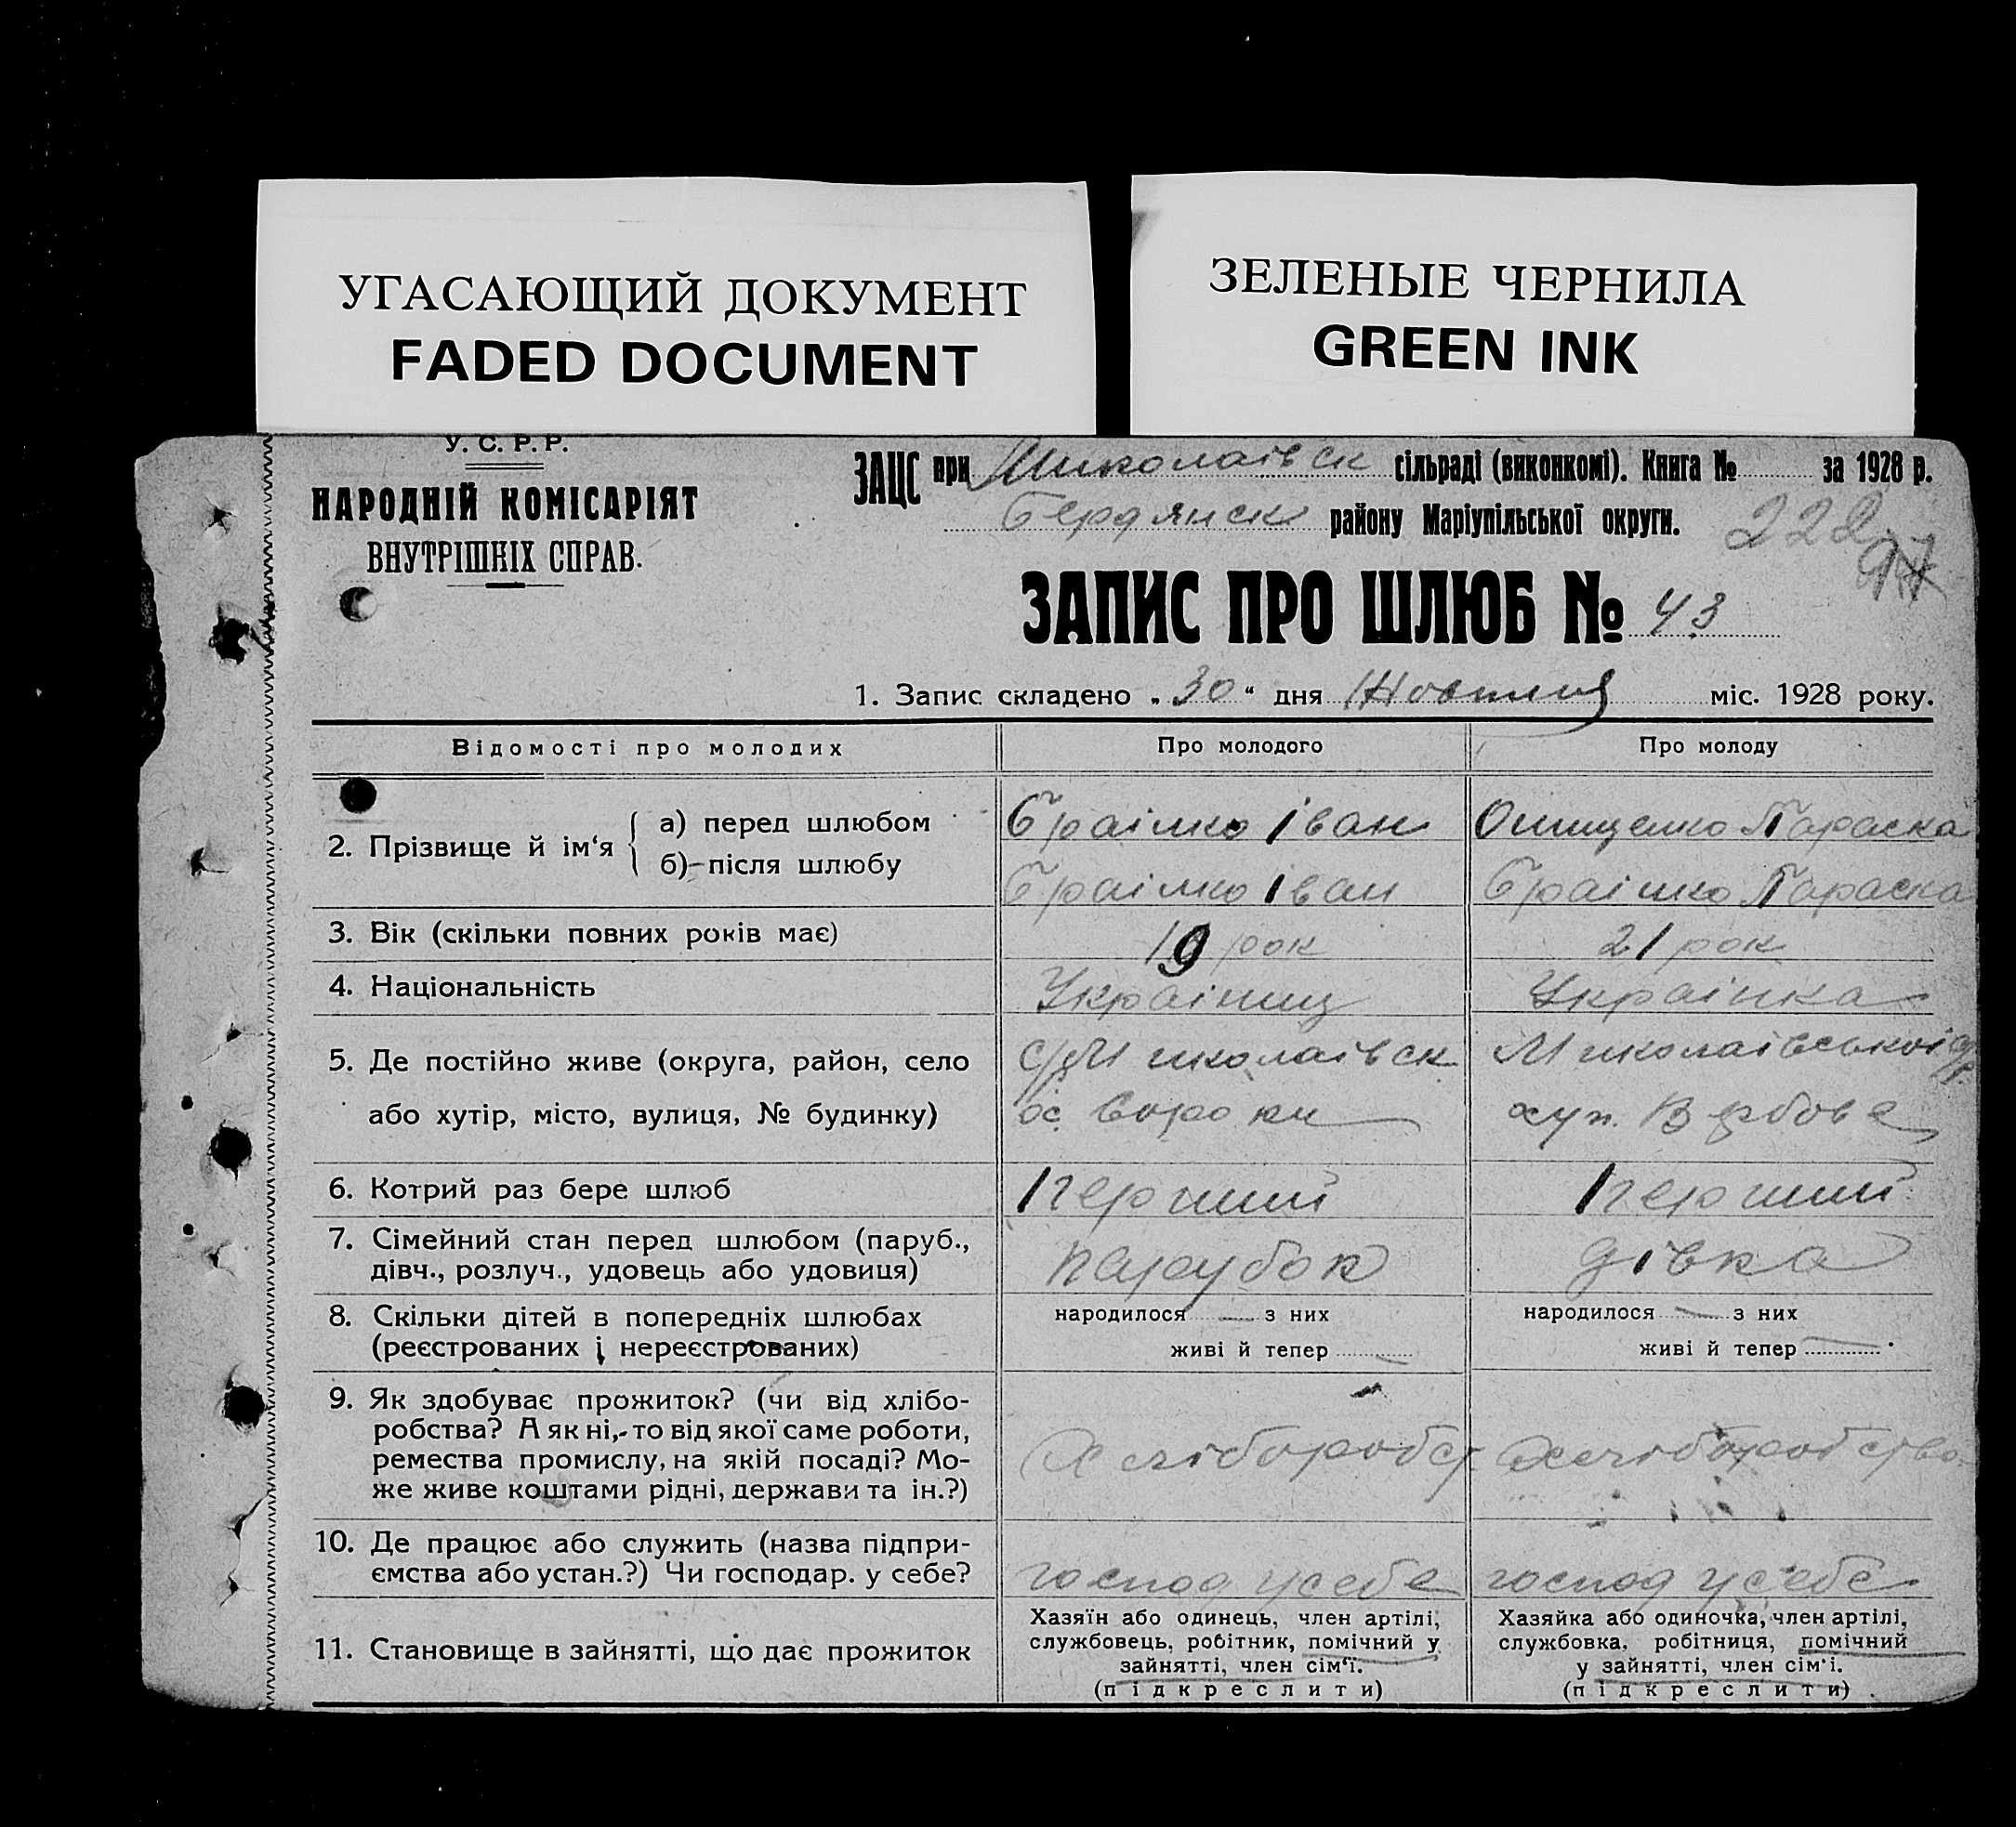 УГАСАЮЩИЙ ДОКУМЕНТ
FADED DOCUMENT
ЗЕЛЕНЫЕ ЧЕРНИЛА
GREEN INK
У. С. Р. Р.
НАРОДНІЙ КОМІСАРІЯТ
ВНУТРІШНІХ СПРАВ.
ЗАЦС при Миколаівск сільраді (виконкомі). Книга № за 1928 р.
Бердянск району Маріупільської округи.
222
97
ЗАПИС ПРО ШЛЮБ № 43
1. Запис складено „30“ дня Жовтня міс. 1928 року.
Відомості про молодих Про молодого Про молоду
2. Прізвище й ім‘я
а) перед шлюбом Браілко Іван Онищенко Параска
б) після шлюбу Браілко Іван Браілко Параска
3. Вік (скільки повних років має) 19 рок 21 рок
4. Національність Украінец Украінка
5. Де постійно живе (округа, район, село с/р Миколаівск Миколаівськоі с/р.
або хутір, місто, вулиця, № будинку) хут. Вербове
6. Котрий раз бере шлюб Перший Перший
7. Сімейний стан перед шлюбом (паруб., парубок дівка
дівч., розлуч., удовець або удовиця)
8. Скільки дітей в попередніх шлюбах народилося — з них народилося — з них
(реєстрованих і нереєстрованих) живі й тепер — живі й тепер —
9. Як здобуває прожиток? (чи від хлібо-
робства? А як ні,- то від якої саме роботи,
ремества промислу, на якій посаді? Мо- Хліборобст. Хліборобство
же живе коштами рідні, держави та ін.?)
10. Де працює або служить (назва підпри-
ємства або устан.?) Чи господар. у себе? господ у себе господ у себе
11. Становище в зайнятті, що дає прожиток
Хазяїн або одинець, член артілі,
службовець, робітник, помічний у
зайнятті, член сім‘ї.
(підкреслити)
Хазяйка або одиночка, член артілі,
службовка, робітниця, помічний
у зайнятті, член сім‘і.
(підкреслити)